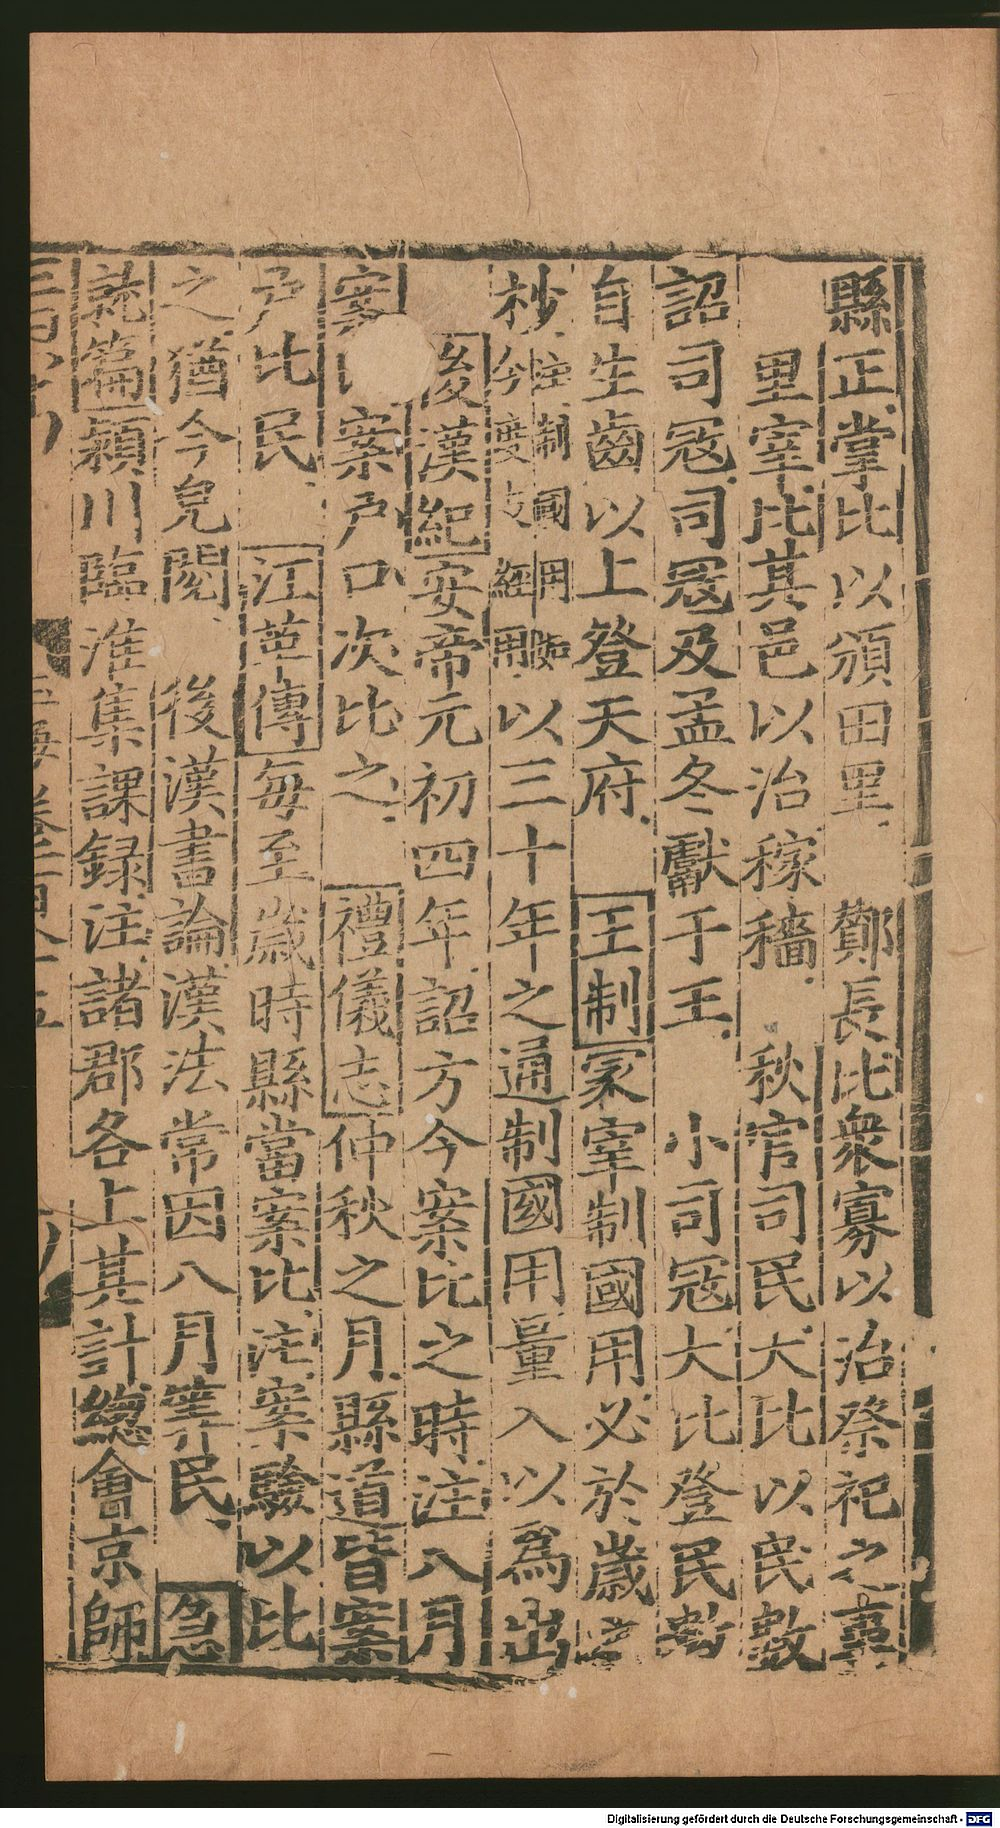 縣正掌比以頒田里 酇長比衆寡以治祭祀之事
里宰比其邑以治稼穡 秋官司民大比以民數
詔司冦司冦及孟冬獻于王 小司冦大比登民數
自生齒以上登天府 王制冢宰制國用必於歲之
杪注制國用如今度支經用以三十年之通制國用量入以爲出
後漢紀安帝元初四年詔方今案比之時注八月
案案戶口次比之 禮儀志仲秋之月縣道皆案
戶比民 江革傳每至歲時縣當案比注案驗以比
之猶今皃閱 後漢書論漢法常因八月筭民 急
就篇潁川臨淮集課録注諸郡各上其計總會京師
玉海 卷百八十五
Digitalisierung gefördert durch die Deutsche Forschungsgemeinschaft - DFG